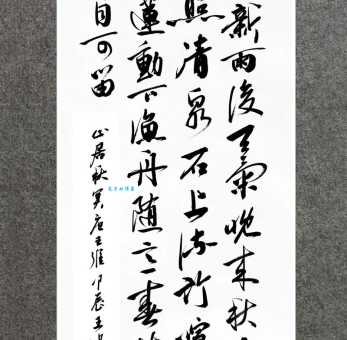 新雨後天氣晚来秋
照清泉石上流竹喧
蓮動下漁舟随意春
自可留
山居秋冥唐王維甲辰